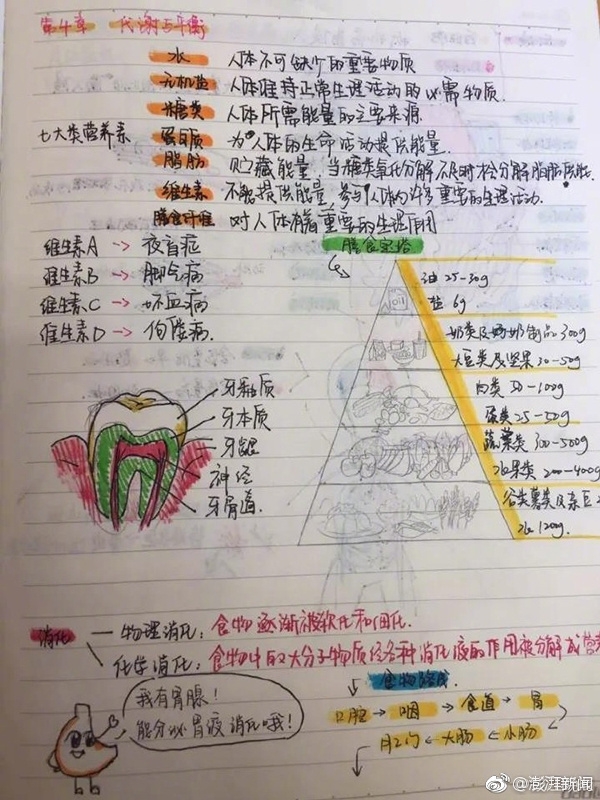 第4章 代谢与平衡
水 人体不可缺少的重要物质
无机盐 人体维持正常生理活动的必需物质.
糖类 人体所需能量的主要来源
七大类营养素
蛋白质 为人体的生命活动提供能量.
脂肪 贮藏能量,当糖类氧化分解不足时才会分解脂肪供能.
维生素 不能提供能量,参与人体的许多重要的生理活动.
膳食纤维 对人体有着重要的生理作用
膳食宝塔
维生素A → 夜盲症
维生素B → 脚气病
维生素C → 坏血病
维生素D → 佝偻病.
油 25-30g
盐 6g
奶类及奶制品 300g
大豆类及坚果 30-50g
肉类 50-100g
蛋类 25-50g
蔬菜类 300-500g
水果类 200-400g
谷类薯类及杂豆
水 1200g.
牙釉质
牙本质
牙龈
神经
牙骨道.
消化
物理消化: 食物逐渐被软化和细化.
化学消化: 食物中的大分子物质经各种消化液的作用被分解成营
我有胃腺!
能分泌胃液消化哦!
口腔 → 咽 → 食道 → 胃
肛门 ← 大肠 ← 小肠
@澎湃新闻